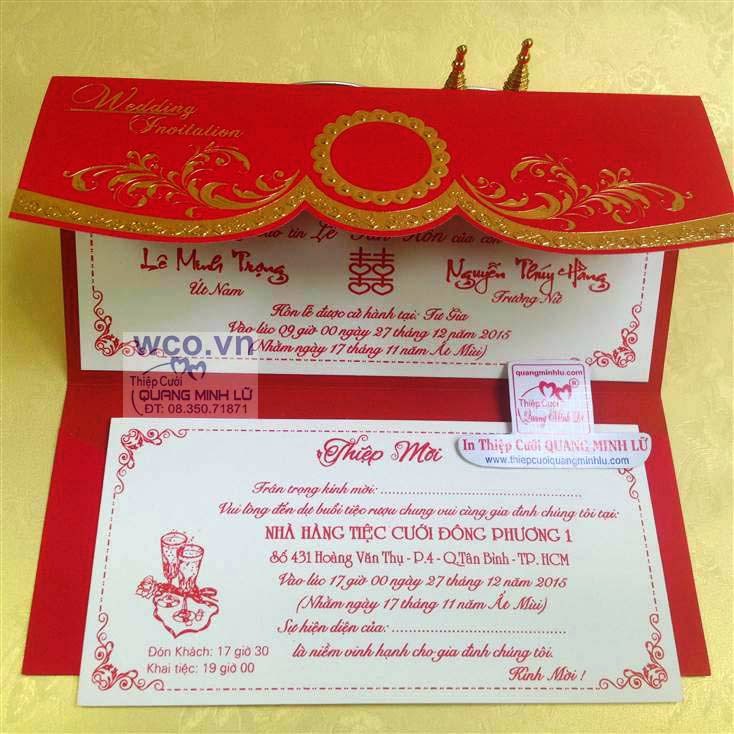 Wedding
Invitation
báo tin Lễ Tân Hôn của con
Lê Minh Trọng 囍 Nguyễn Thúy Hằng
Út Nam Trưởng Nữ
Hôn lễ được cử hành tại: Tư Gia
Vào lúc 09 giờ 00 ngày 27 tháng 12 năm 2015
(Nhằm ngày 17 tháng 11 năm Ất Mùi)
wco.vn
Thiệp Cưới
QUANG MINH LỮ
ĐT: 08.350.71871
quangminhlu.com
®
Thiệp Cưới
Quang Minh Lữ
In Thiệp Cưới QUANG MINH LỮ
www.thiepcuoiquangminhlu.com
Thiệp Mời
Trân trọng kính mời: ....................................................
Vui lòng đến dự buổi tiệc rượu chung vui cùng gia đình chúng tôi tại:
NHÀ HÀNG TIỆC CƯỚI ĐÔNG PHƯƠNG 1
Số 431 Hoàng Văn Thụ - P.4 - Q.Tân Bình - TP. HCM
Vào lúc 17 giờ 00 ngày 27 tháng 12 năm 2015
(Nhằm ngày 17 tháng 11 năm Ất Mùi)
Sự hiện diện của: ....................................................
là niềm vinh hạnh cho gia đình chúng tôi.
Kính Mời !
Đón Khách: 17 giờ 30
Khai tiệc: 19 giờ 00